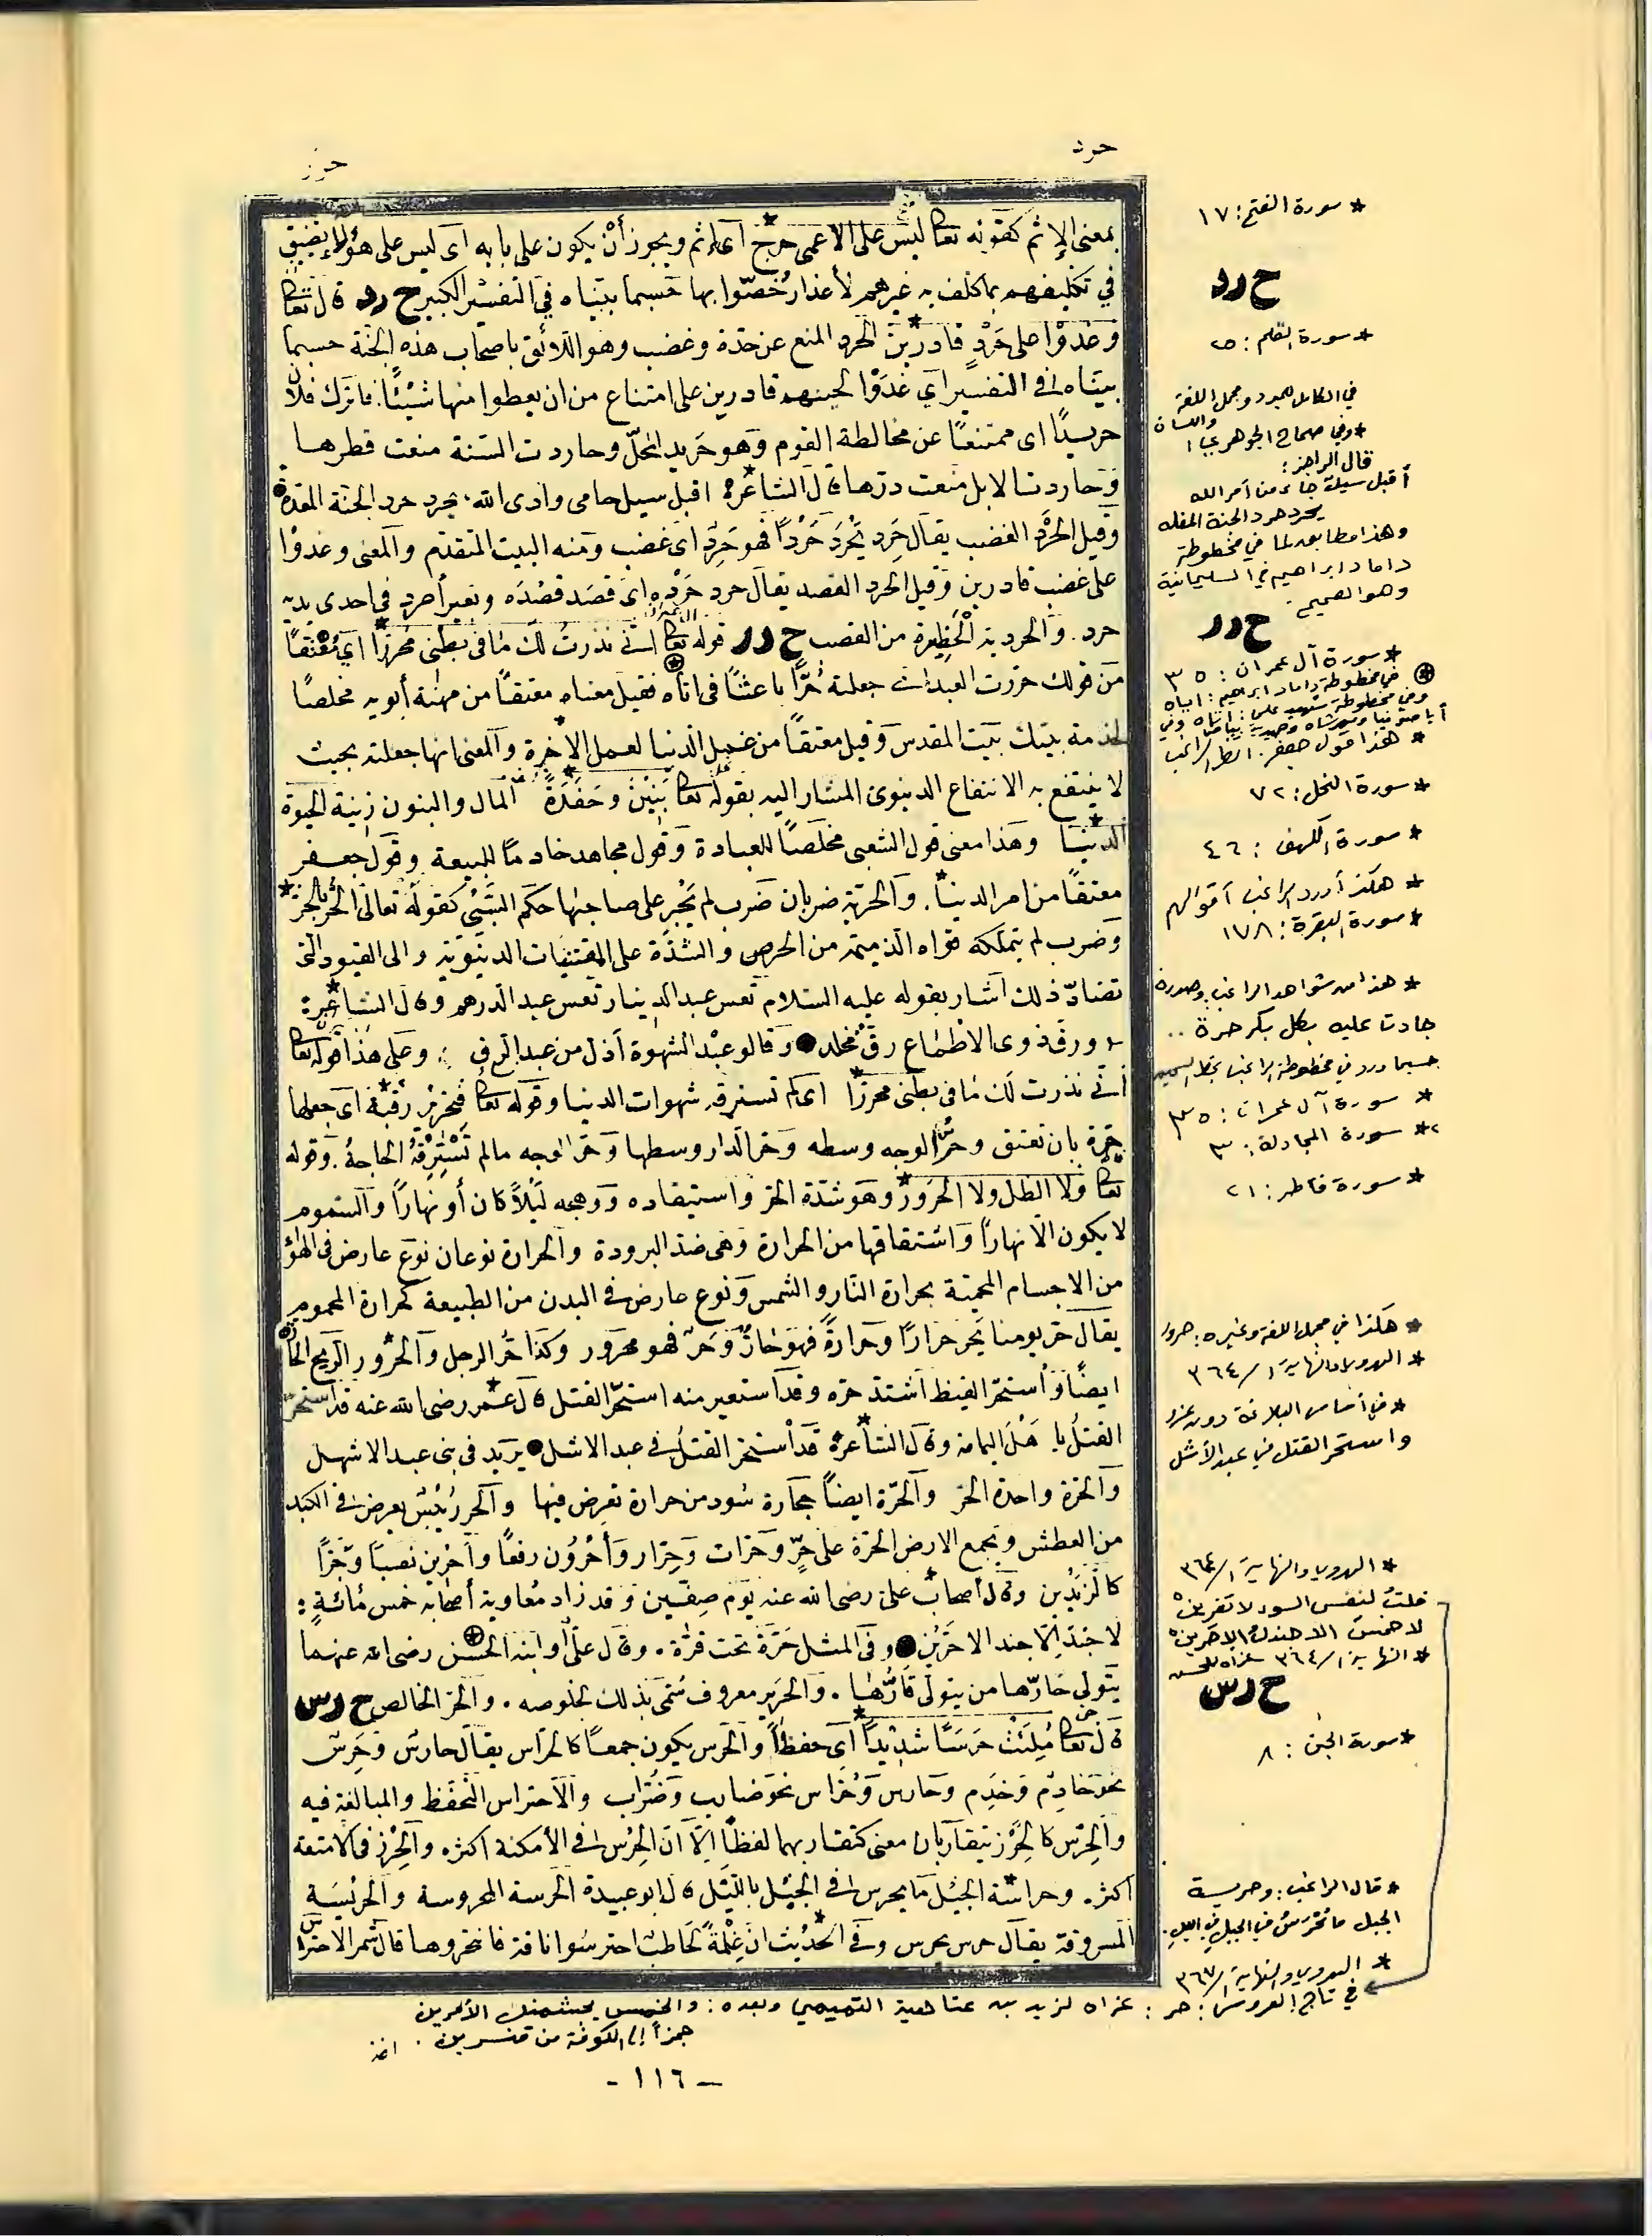 حرد
حرز
بمعنى الإثم كقوله تعا ليس على الاعمى حرج أي إثم ويجوز أن يكون على بابه اى ليس على هؤلاء تضييق
في تكليفهم بما كلف به غيرهم لأعذار خُصّوا بها حسبما بيّناه في التفسير الكبير ح ر د قال تعا
وغدَوْا على حَرْدٍ قادرين الحرد المنع عن حدّة وغضب وهو اللائق باصحاب هذه الجنّة حسبما
بيّناه في التفسير اي غَدَوْا لجينهم قادرين على امتناع من ان يعطوا منها شيْئًا. فا ترك فلان
حريدًا اى ممتنعًا عن مخالطة القوم وهو حَريد المحلّ وحاردت السّنة منعت قطرها
وحاردت الابل منعت درّها قال الشاعر ه اقبل سيل حامى وادى الله. يحرد حرد الجنّة المغلة ●
وقيل الحَرْد الغضب يقال حَرِد يَحْرَد حَرْدًا فهو حَرِد اى غضب ومنه البيت المتقدّم والمعنى وغدوْا
على غضب قادرين وقيل الحرد القصد يقال حرد حَرْدَه اى قصَد قصْدَه وبعير أحرد في احدى يديه
حرد. والحردية الحَظِيرة من القصب ح ر ر قوله تعا إنّي نذرتُ لك مَا فى بَطنى مُحرَّرًا اي مُعْتَقًا
من قولك حرّرت العبد اى جعلته حُرًّا باعثًا فى اناه فقيل معناه معتقًا من مهنة أبويه مخلصًا
لخدمة بيتك بيت المقدس وقيل معتقًا من عمل الدنيا لعمل الاخرة والمعنى انها جعلته بحيث
لا ينتفع به الانتفاع الدنيوى المشار اليه بقوله تعا بَنِيْنَ وحَفَدَةً المال والبنون زينة الحيوة
الدّنيا وهذا معنى قول الشعبى مخلَصًا للعبادة وقول مجاهد خادمًا للبيعة وقول جعفر
معتقًا من امر الدنيا. والحرّية ضربان ضَرب لم يَجْرِ على صاحبها حكم السَّبْي كقوله تعالى الحُرّ بالحرّ
وضرب لم يتملّكه قواه الذميمة من الحرص والشدّة على المقتنيات الدنيويّة والى العبودية التى
تضادّ ذلك اشار بقوله عليه السّلام تعس عبد الدينار تعس عبد الدرهم وقال الشاعر ه
ورقّ ذوى الاطماع رقّ مخلد ● وقالو عبْد الشهوة أذلّ من عبد الرق ؛ وعلى هذا قوله تعا
انّى نذرت لك مَا فى بطنى محرّرًا اى لم تسترقه شهوات الدنيا وقوله تعا فتحريْر رقبة اى جعلها
حرّة بان تعتق وحُرّ الوجه وسطه وحرّ الدار وسطها وحَرّ الوجه ما لم تَسْتَرِقّهُ الحاجة. وقوله
تعا ولا الظل ولا الحَرور وهو شدّة الحَر واستيقاده ووهجه ليْلاً كان أو نهارًا والسّموم
لا يكون الّا نهارًا واشتقاقها من الحرارة وهى ضدّ البرودة والحرارة نوعان نوع عارض فى الهواء
من الاجسام المحمّية بحرارة النّار والشمس ونوع عارض فى البدن من الطبيعة كحرارة المحموم
يقال حَرّ يومنا يَحرّ حرارًا وحرارةً فهو حَارٌّ وحَرّ فهو محرور وكذا حُرّ الرجل والحَرُور الريح الحارّة
ايضًا واُستحرّ القيظ اشتدّ حرّه وقد اُستعير منه استحرّ القتل قال عمر رضى الله عنه قد استحرّ
القتلُ بأهل اليمامة وقال الشاعر ه قد اُستحرّ القتلُ في عبد الاشل ● يريد فى بنى عبد الاشهل
والحَرّة واحدة الحَرّ والحَرّة ايضًا حجارة سُود من حرارة تعرض فيها والحرر يُبْسٌ يعرض في الكبد
من العطش ويجمع الارض الحَرّة على حَرٍّ وحَرّات وحِرار وأحَرُّون رفعًا وأحَرّين نصبًا وجَرًّا
كالزّيدين وقال أصحاب على رضى الله عنه يوْم صِفّين وقد زاد مُعاوية أصحابه خمس مُائةٍ:
لا جندَ إلّا جند الاحَرّيْن ● وفى المثل حَرّة تحت قرّة. وقال علىّ أو ابنه الحسن رضى الله عنهما
يتولى حَارّها من يتولى قَارّها. والحَرير معروف سُمّى بذلك لخلوصه. والحُر الخالص ح ر س
قال تعا مُلِئَتْ حَرَسًا شَدِيدًا اى حفظًا والحَرس يكون جمعًا كالحُرّاس يقال حارسٌ وحَرس
نحو خادِم وخَدَم وحارس وحُرّاس نحو ضارب وضُرّاب والاحتراس التحفّظ والمبالغة فيه
والحِرْس كالحِرْز يتقاربان معنى كتقاربهما لفظًا إلّا انّ الحِرْس فى الأمكنة اكثر. والحِرْز فى الامتعة
اكثر. وحراسة الجبَل مَا يحرس فى الجبَل بالليْل قال ابو عبيدة الحرسة المحروسة والحريْسَة
المسروقة يقال حرس يحرس وفى الحديث انّ غِلْمةً لحَاطب احترسُوا ناقة فانتحروها قال شمر الاحتراس
* سورة الفتح: ١٧
ح ر د
* سورة القلم: ٢٥
في الكامل للمبرد ومجمل اللغة
واللسان
* وفي صحاح الجوهري
قال الراجز:
أقبل سيلٌ جاء من أمر الله
يحرد حرد الجنة المغله
وهذا مطابق لما في مخطوطة
داماد ابراهيم في السليمانية
وهو الصحيح.
ح ر ر
* سورة آل عمران: ٣٥
في مخطوطة داماد ابراهيم: اناه
* هذا قول جعفر. انظر الراغب
* سورة النحل: ٧٢
* سورة الكهف: ٤٦
* هكذا أورد الراغب أقوالهم
* سورة البقرة: ١٧٨
* هذا من شواهد الراغب وصدره
جادت عليه بكل بكر حرة ..
حسبما ورد في مخطوطة الراغب بخط
* سورة آل عمران: ٣٥
* سورة المجادلة: ٣
* سورة فاطر: ٢١
* هكذا في مجمل اللغة وغيره: حرور
* الهروي والنهاية ١/ ٣٦٤
* في أساس البلاغة دون عزو
واستحر القتل في عبد الأشل
* الهروي والنهاية ١/ ٣٦٤
قلت لنفس السوء لا تفرين
لا خمس الا جندل الاحرين
* النهاية ١/ ٣٦٤ عزاه للحسن
ح ر س
* سورة الجن: ٨
* قال الراغب: وحريسة
الجبل ما يُحْرَسُ في الجبل بالليل.
* الهروي والنهاية ١/ ٣٦٧
في تاج العروس: حر: عزاه لزيد بن عتاهية التميمي وبعده: والخمس يجشمنك الأمرين
جمزاً إلى الكوفة من قنسرين. اهـ
- ١١٦ -